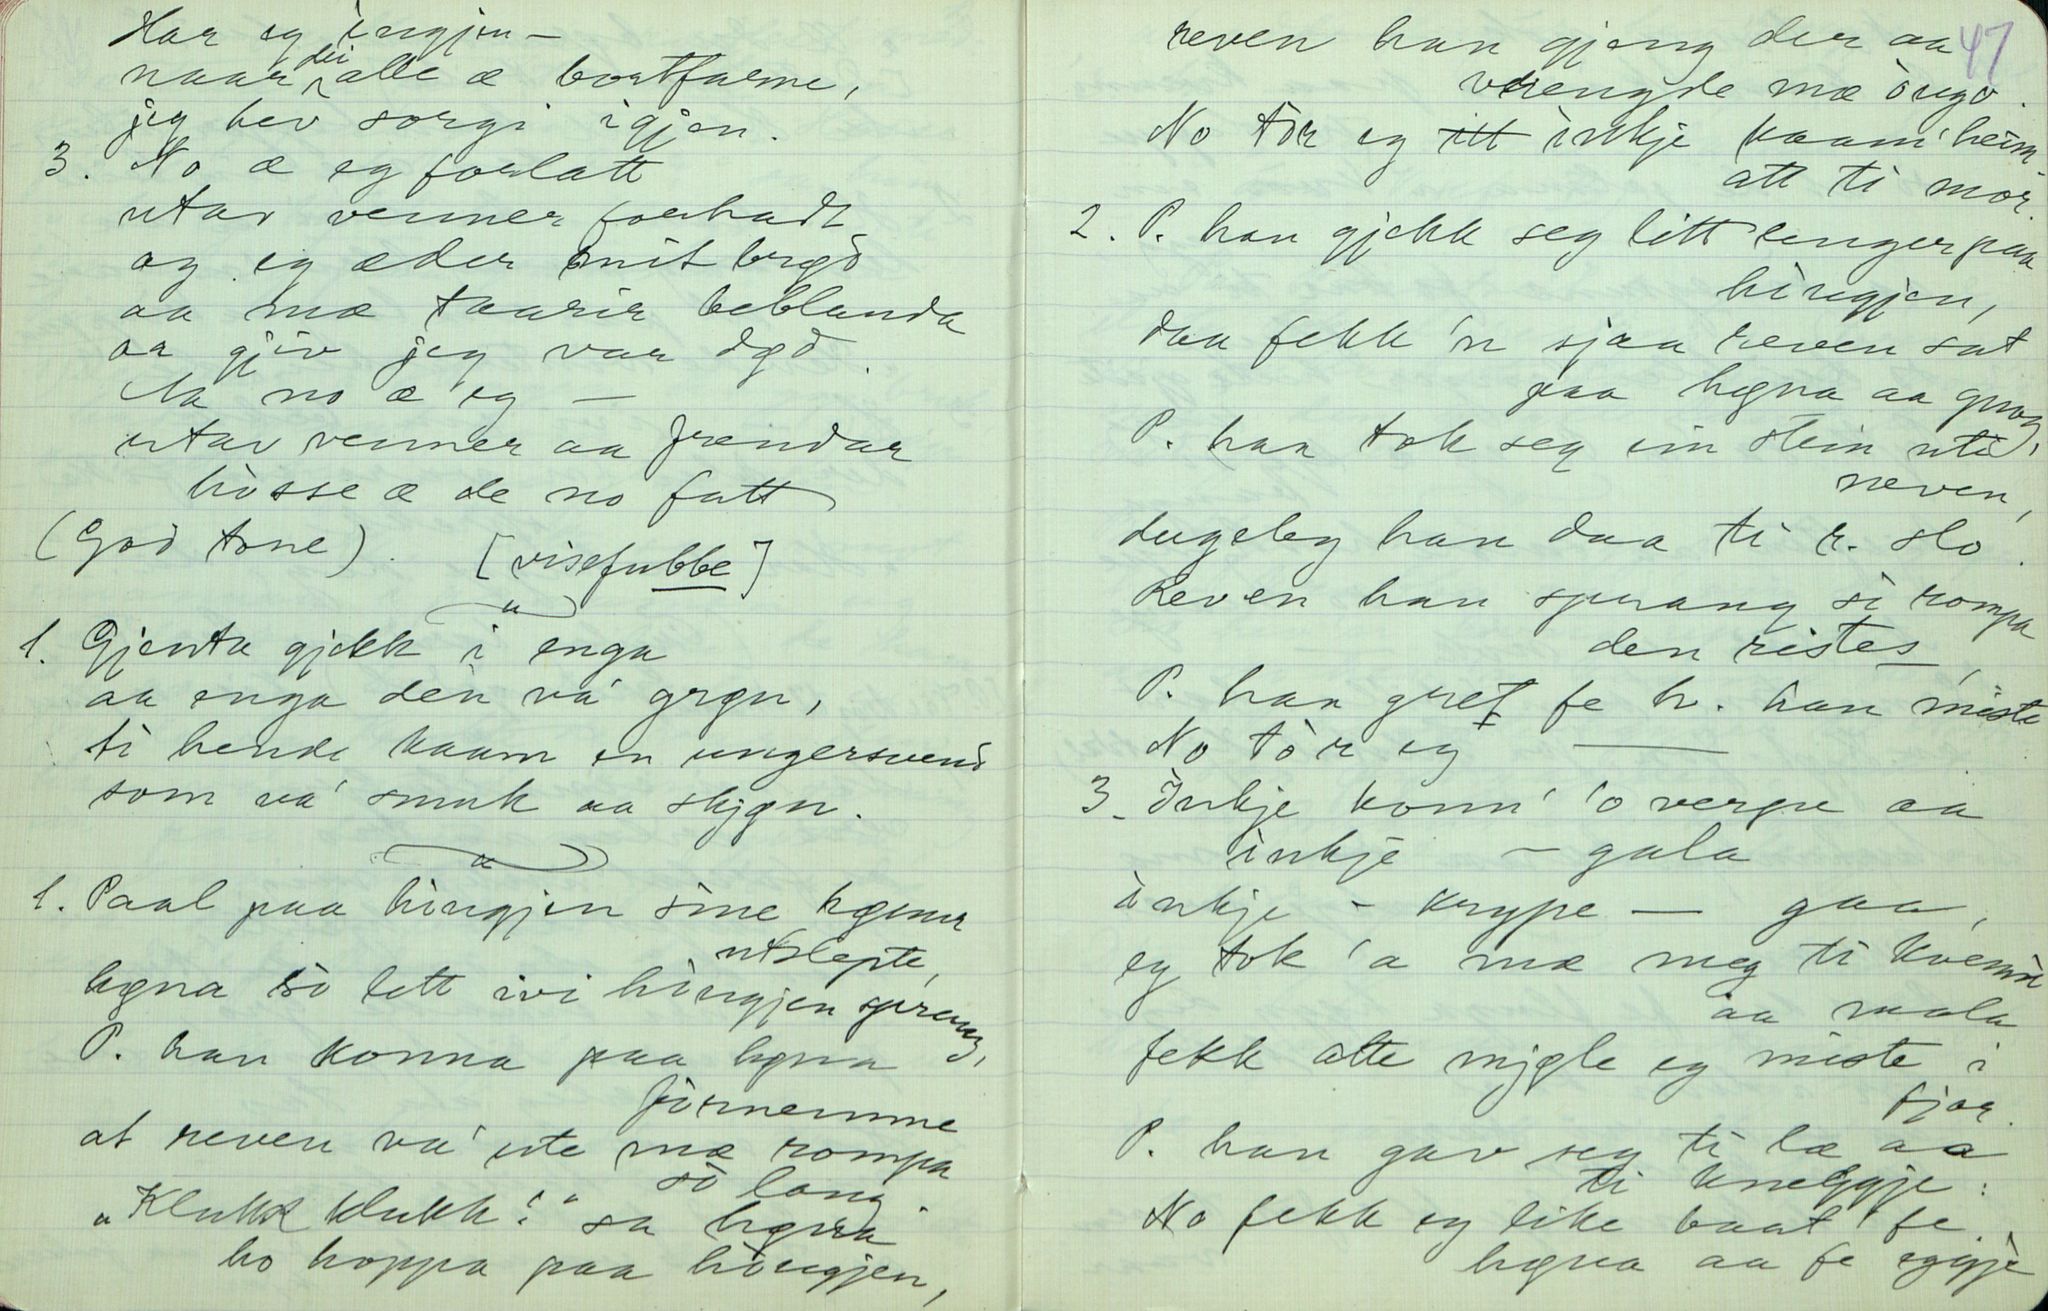 Har eg ingjen –
naar dei alle æ bortfarne,
jeg hev sorgi igjen.
3. No æ eg forlatt
utav venner forhadt
og eg æder mit brød
aa mæ taarir beblanda
aa gjiv jeg var død.
Aa no æ eg –
utav venner aa frendar
hòsse æ de no fatt
(God tone). [visefubbe]
1. Gjenta gjekk i enga
aa enga den va' grøn,
ti hende kaam en ungersvend
som va' smuk aa skjøn.
1. Paal paa hingjen sine høner
utslepte,
høna sò lett ivi hingjen sprang,
P. han konna paa høna
fornemme
at reven va' ute mæ rompa
sò lang
"Klukk klukk!" sa høna
ho hoppa paa hingjen,
47
reven han gjeng der aa
vrengde mæ òugo.
No tòr eg itt inkje kaam' heim
att ti mor.
2. P. han gjekk seg litt lenger paa
hingjen,
daa fekk 'n sjaa reven sat
paa høna aa gnog,
P. han tok seg ein stein uti
neven,
dugeleg han daa ti r. slo.
Reven han sprang so rompa
den ristes,
P. han gret fe h. han miste
No tòr eg —
3. Inkje konn' 'o verpe aa
inkje – gala
inkje – krype – gaa,
eg tok 'a mæ meg ti kvenni
aa mala
fekk atte mjøle eg miste i
fjor.
P. han gav seg ti læ aa
ti kneggje:
No fekk eg like baat' fe
høna aa fe eggje